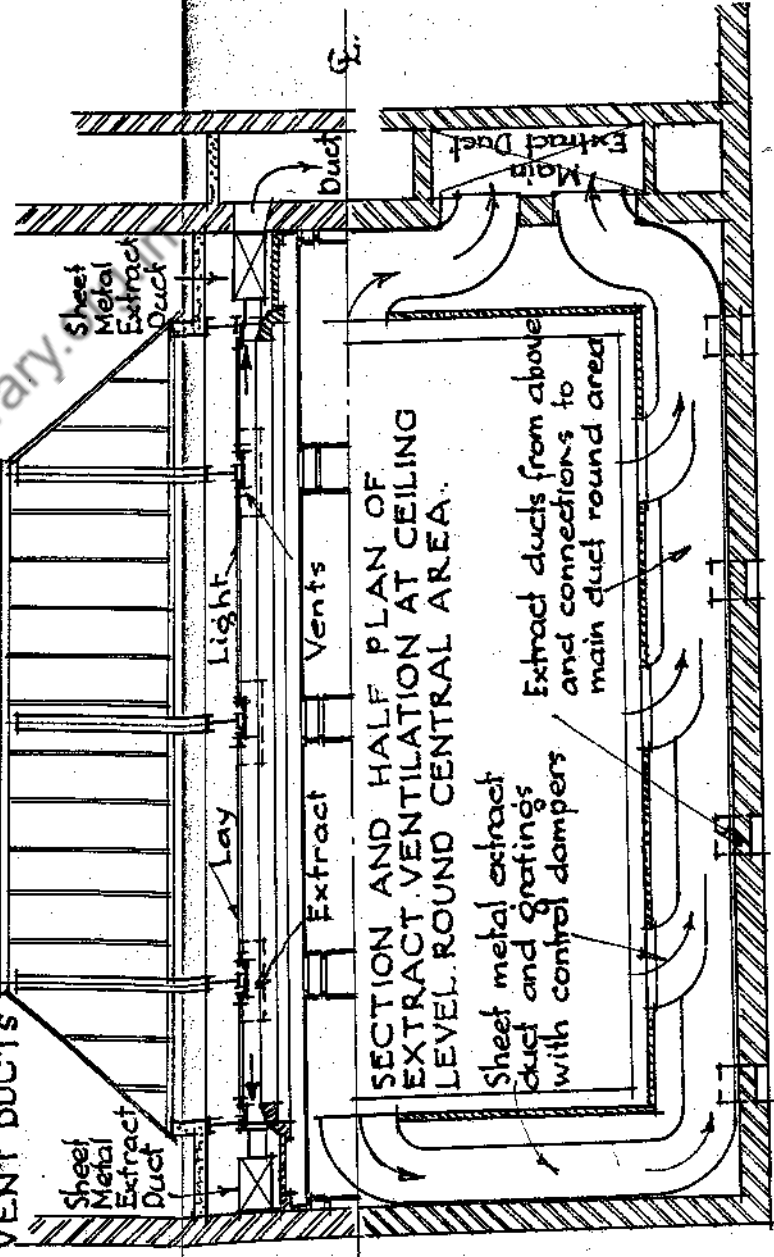 VENT DUCTS
Sheet
Metal
Extract
Duct
Sheet
Metal
Extract
Duct
Lay Light
Extract Vents
Duct
℄
SECTION AND HALF PLAN OF
EXTRACT.VENTILATION AT CEILING
LEVEL.ROUND CENTRAL AREA.
Sheet metal extract
duct and gratings
with control dampers
Extract ducts from above
and connections to
main duct round area
Main
Extract Duct